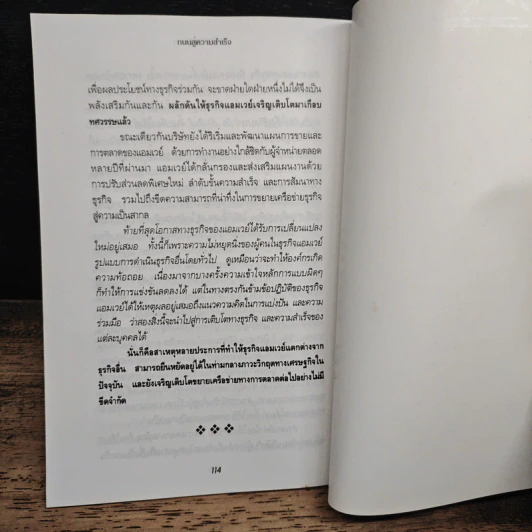 ถนนสู่ความสำเร็จ
เพื่อผลประโยชน์ทางธุรกิจร่วมกัน จะขาดฝ่ายใดฝ่ายหนึ่งไม่ได้จึงเป็น
พลังเสริมกันและกัน ผลักดันให้ธุรกิจแอมเวย์เจริญเติบโตมาเกือบ
ทศวรรษแล้ว
ขณะเดียวกันบริษัทยังได้ริเริ่มและพัฒนาแผนการขายและ
การตลาดของแอมเวย์ ด้วยการทำงานอย่างใกล้ชิดกับผู้จำหน่ายตลอด
หลายปีที่ผ่านมา แอมเวย์ได้กลั่นกรองและส่งเสริมแผนงานด้วย
การปรับส่วนลดพิเศษใหม่ ลำดับขั้นความสำเร็จ และการสัมนาทาง
ธุรกิจ รวมไปถึงขีดความสามารถที่น่าทึ่งในการขยายเครือข่ายธุรกิจ
สู่ความเป็นสากล
ท้ายที่สุดโอกาสทางธุรกิจของแอมเวย์ได้รับการเปลี่ยนแปลง
ใหม่อยู่เสมอ ทั้งนี้ก็เพราะความไม่หยุดนิ่งของผู้คนในธุรกิจแอมเวย์
รูปแบบการดำเนินธุรกิจอื่นโดยทั่วไป ดูเหมือนว่าจะทำให้องค์กรเกิด
ความท้อถอย เนื่องมาจากบางครั้งความเข้าใจหลักการแบบผิดๆ
ก็ทำให้การแข่งขันลดลงได้ แต่ในทางตรงกันข้ามข้อปฏิบัติของธุรกิจ
แอมเวย์ได้ให้เหตุผลอยู่เสมอถึงแนวความคิดในการแบ่งปัน และความ
ร่วมมือ ว่าสองสิ่งนี้จะนำไปสู่การเติบโตทางธุรกิจ และความสำเร็จของ
แต่ละบุคคลได้
นั่นก็คือสาเหตุหลายประการที่ทำให้ธุรกิจแอมเวย์แตกต่างจาก
ธุรกิจอื่น สามารถยืนหยัดอยู่ได้ในท่ามกลางภาวะวิกฤตทางเศรษฐกิจใน
ปัจจุบัน และยังเจริญเติบโตขยายเครือข่ายทางการตลาดต่อไปอย่างไม่มี
ขีดจำกัด
114